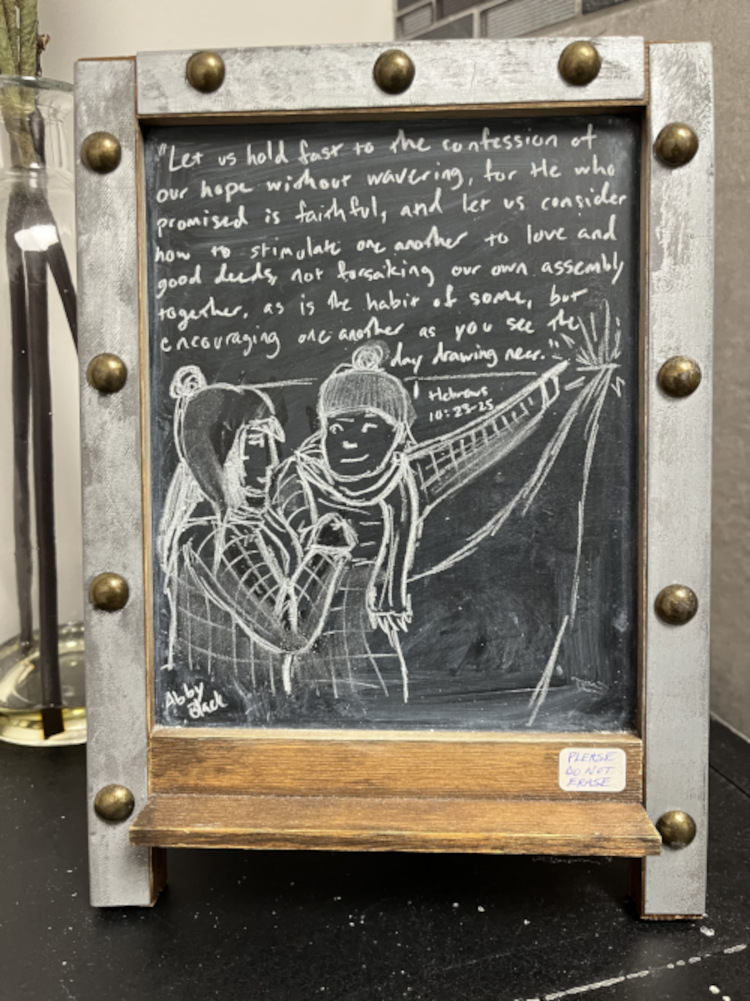 "Let us hold fast to the confession of
our hope without wavering, for He who
promised is faithful, and let us consider
how to stimulate one another to love and
good deeds, not forsaking our own assembly
together, as is the habit of some, but
encouraging one another as you see the
day drawing near."
Hebrews
10:23-25
Abby
Black
PLEASE
DO NOT
ERASE